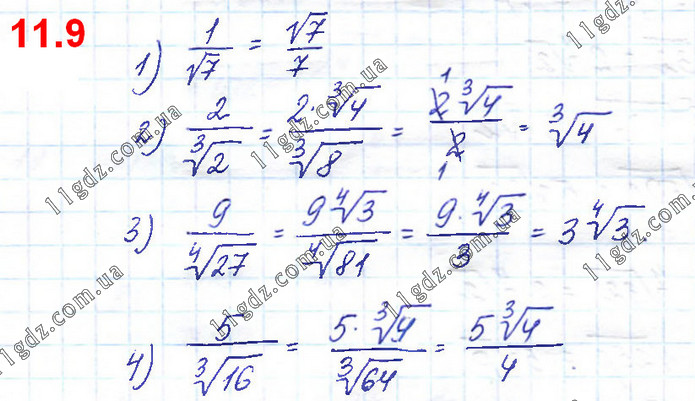 11.9
1) 1/√7 = √7/7
2) 2/∛2 = 2·∛4/∛8 = 2∛4/2 = ∛4
3) 9/∜27 = 9∜3/∜81 = 9·∜3/3 = 3∜3
4) 5/∛16 = 5·∛4/∛64 = 5∛4/4
11gdz.com.ua
11gdz.com.ua
11gdz.com.ua
11gdz.com.ua
11gdz.com.ua
11gdz.com.ua
11gdz.com.ua